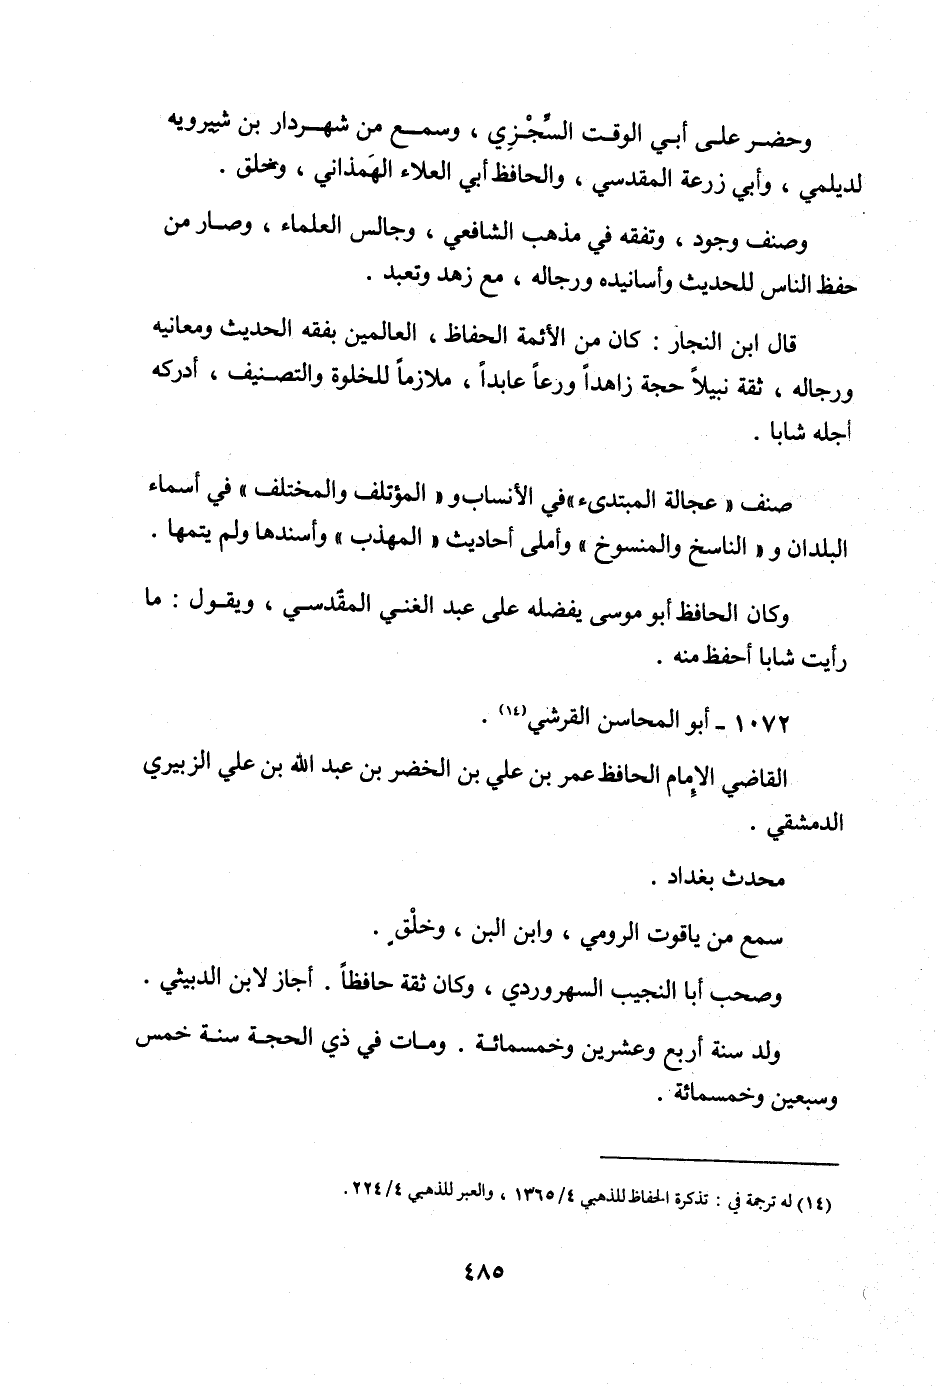 وحضر على أبي الوقت السِّجْزِي ، وسمع من شهردار بن شيرويه
لديلمي ، وأبي زرعة المقدسي ، والحافظ أبي العلاء الهَمذاني ، وخلق .
وصنف وجود ، وتفقه في مذهب الشافعي ، وجالس العلماء ، وصار من
حفظ الناس للحديث وأسانيده ورجاله ، مع زهد وتعبد .
قال ابن النجار : كان من الأئمة الحفاظ ، العالمين بفقه الحديث ومعانيه
ورجاله ، ثقة نبيلاً حجة زاهداً ورعاً عابداً ، ملازماً للخلوة والتصنيف ، أدركه
أجله شابا .
صنف « عجالة المبتدىء » في الأنساب و « المؤتلف والمختلف » في أسماء
البلدان و « الناسخ والمنسوخ » وأملى أحاديث « المهذب » وأسندها ولم يتمها .
وكان الحافظ أبو موسى يفضله على عبد الغني المقدسي ، ويقول : ما
رأيت شابا أحفظ منه .
١٠٧٢ ـ أبو المحاسن القرشي(١٤) .
القاضي الإمام الحافظ عمر بن علي بن الخضر بن عبد الله بن علي الزبيري
الدمشقي .
محدث بغداد .
سمع من ياقوت الرومي ، وابن البن ، وخلْقٍ .
وصحب أبا النجيب السهروردي ، وكان ثقة حافظاً . أجاز لابن الدبيثي .
ولد سنة أربع وعشرين وخمسمائة . ومات في ذي الحجة سنة خمس
وسبعين وخمسمائة .
(١٤) له ترجمة في : تذكرة الحفاظ للذهبي ٤/ ١٣٦٥ ، والعبر للذهبي ٤/ ٢٢٤ .
٤٨٥